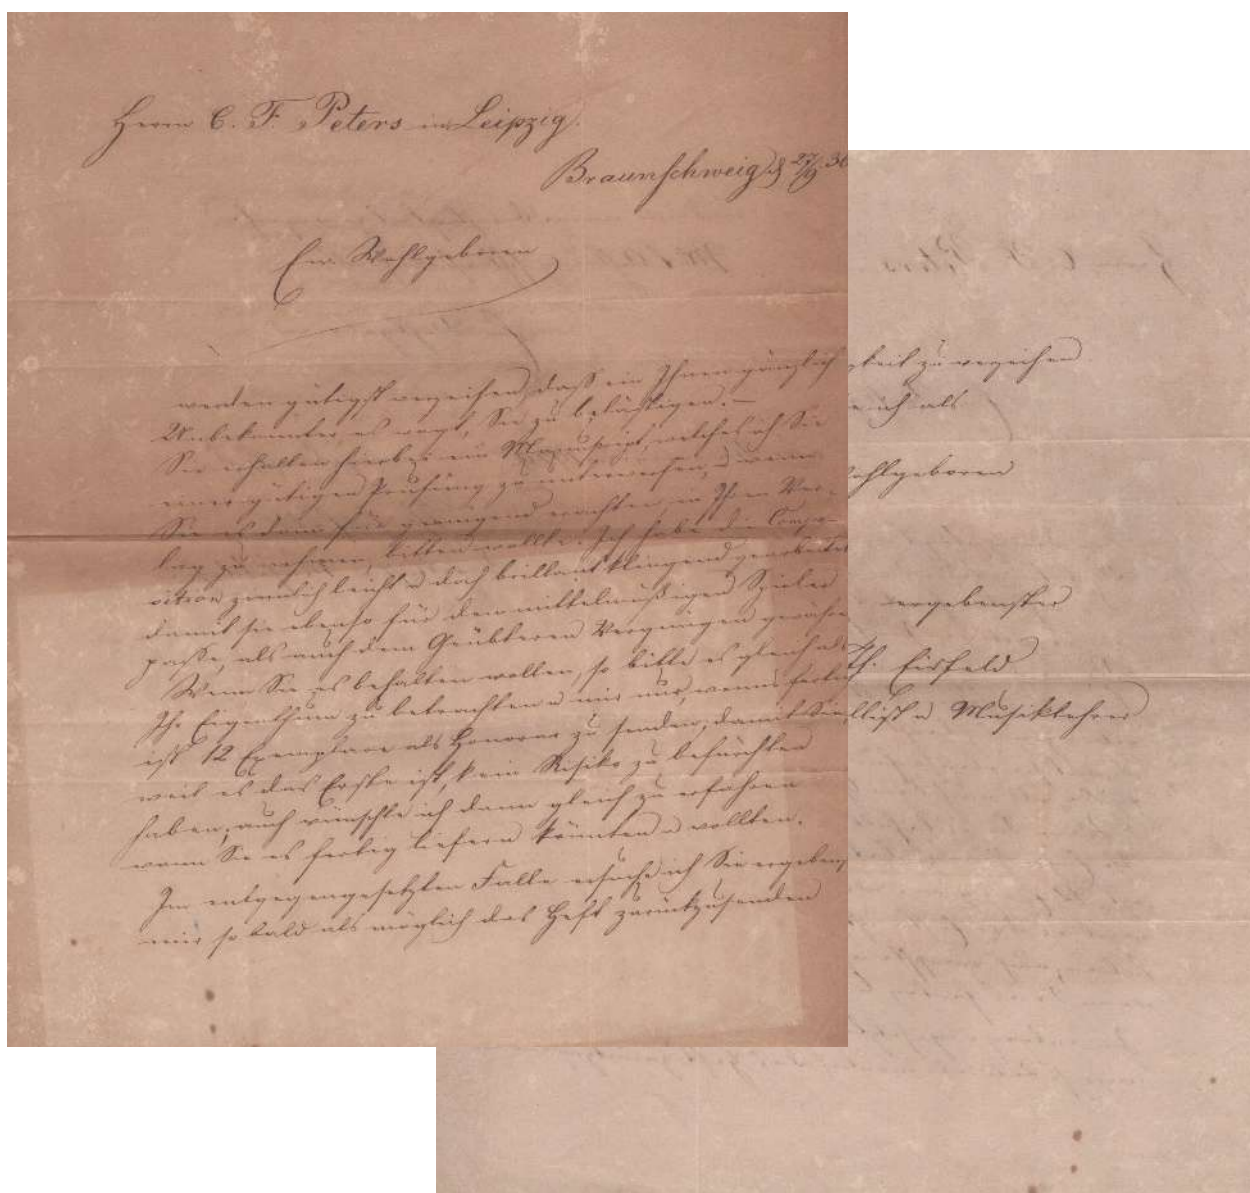 Herrn C. F. Peters in Leipzig.
Braunschweig d 27/9. 36
Ew. Wohlgeboren
werden gütigst verzeihen, daß ein Ihnen gänzlich
Unbekannter es wagt, Sie zu belästigen. –
Sie erhalten hierbei ein Manuscript, welches ich Sie
einer gütigen Prüfung zu unterwerfen, u wenn
Sie es dann für genügend erachten, in Ihren Ver-
lag zu nehmen, bitten wollte. Ich habe die Compo-
sition ziemlich leicht u doch brillant klingend gearbeitet
damit sie ebenso für den mittelmäßigen Spieler
passe, als auch dem Geübteren Vergnügen gewähre
Wenn Sie es behalten wollen, so bitte es gleich als
Ihr Eigenthum zu betrachten u mir nur, wenns fertig
ist 12 Exemplare als Honorar zu senden, damit Sie
weil es das Erste ist, kein Risiko zu befürchten
haben; auch wünschte ich dann gleich zu erfahren
wann Sie es fertig liefern könnten u wollten.
Im entgegengesetzten Falle ersuche ich Sie ergebenst
mir so bald als möglich das Heft zurückzusenden
keit zu verzeihen
ich als
Wohlgeboren
ergebenster
Th. Eisfeld
llist u Musiklehrer